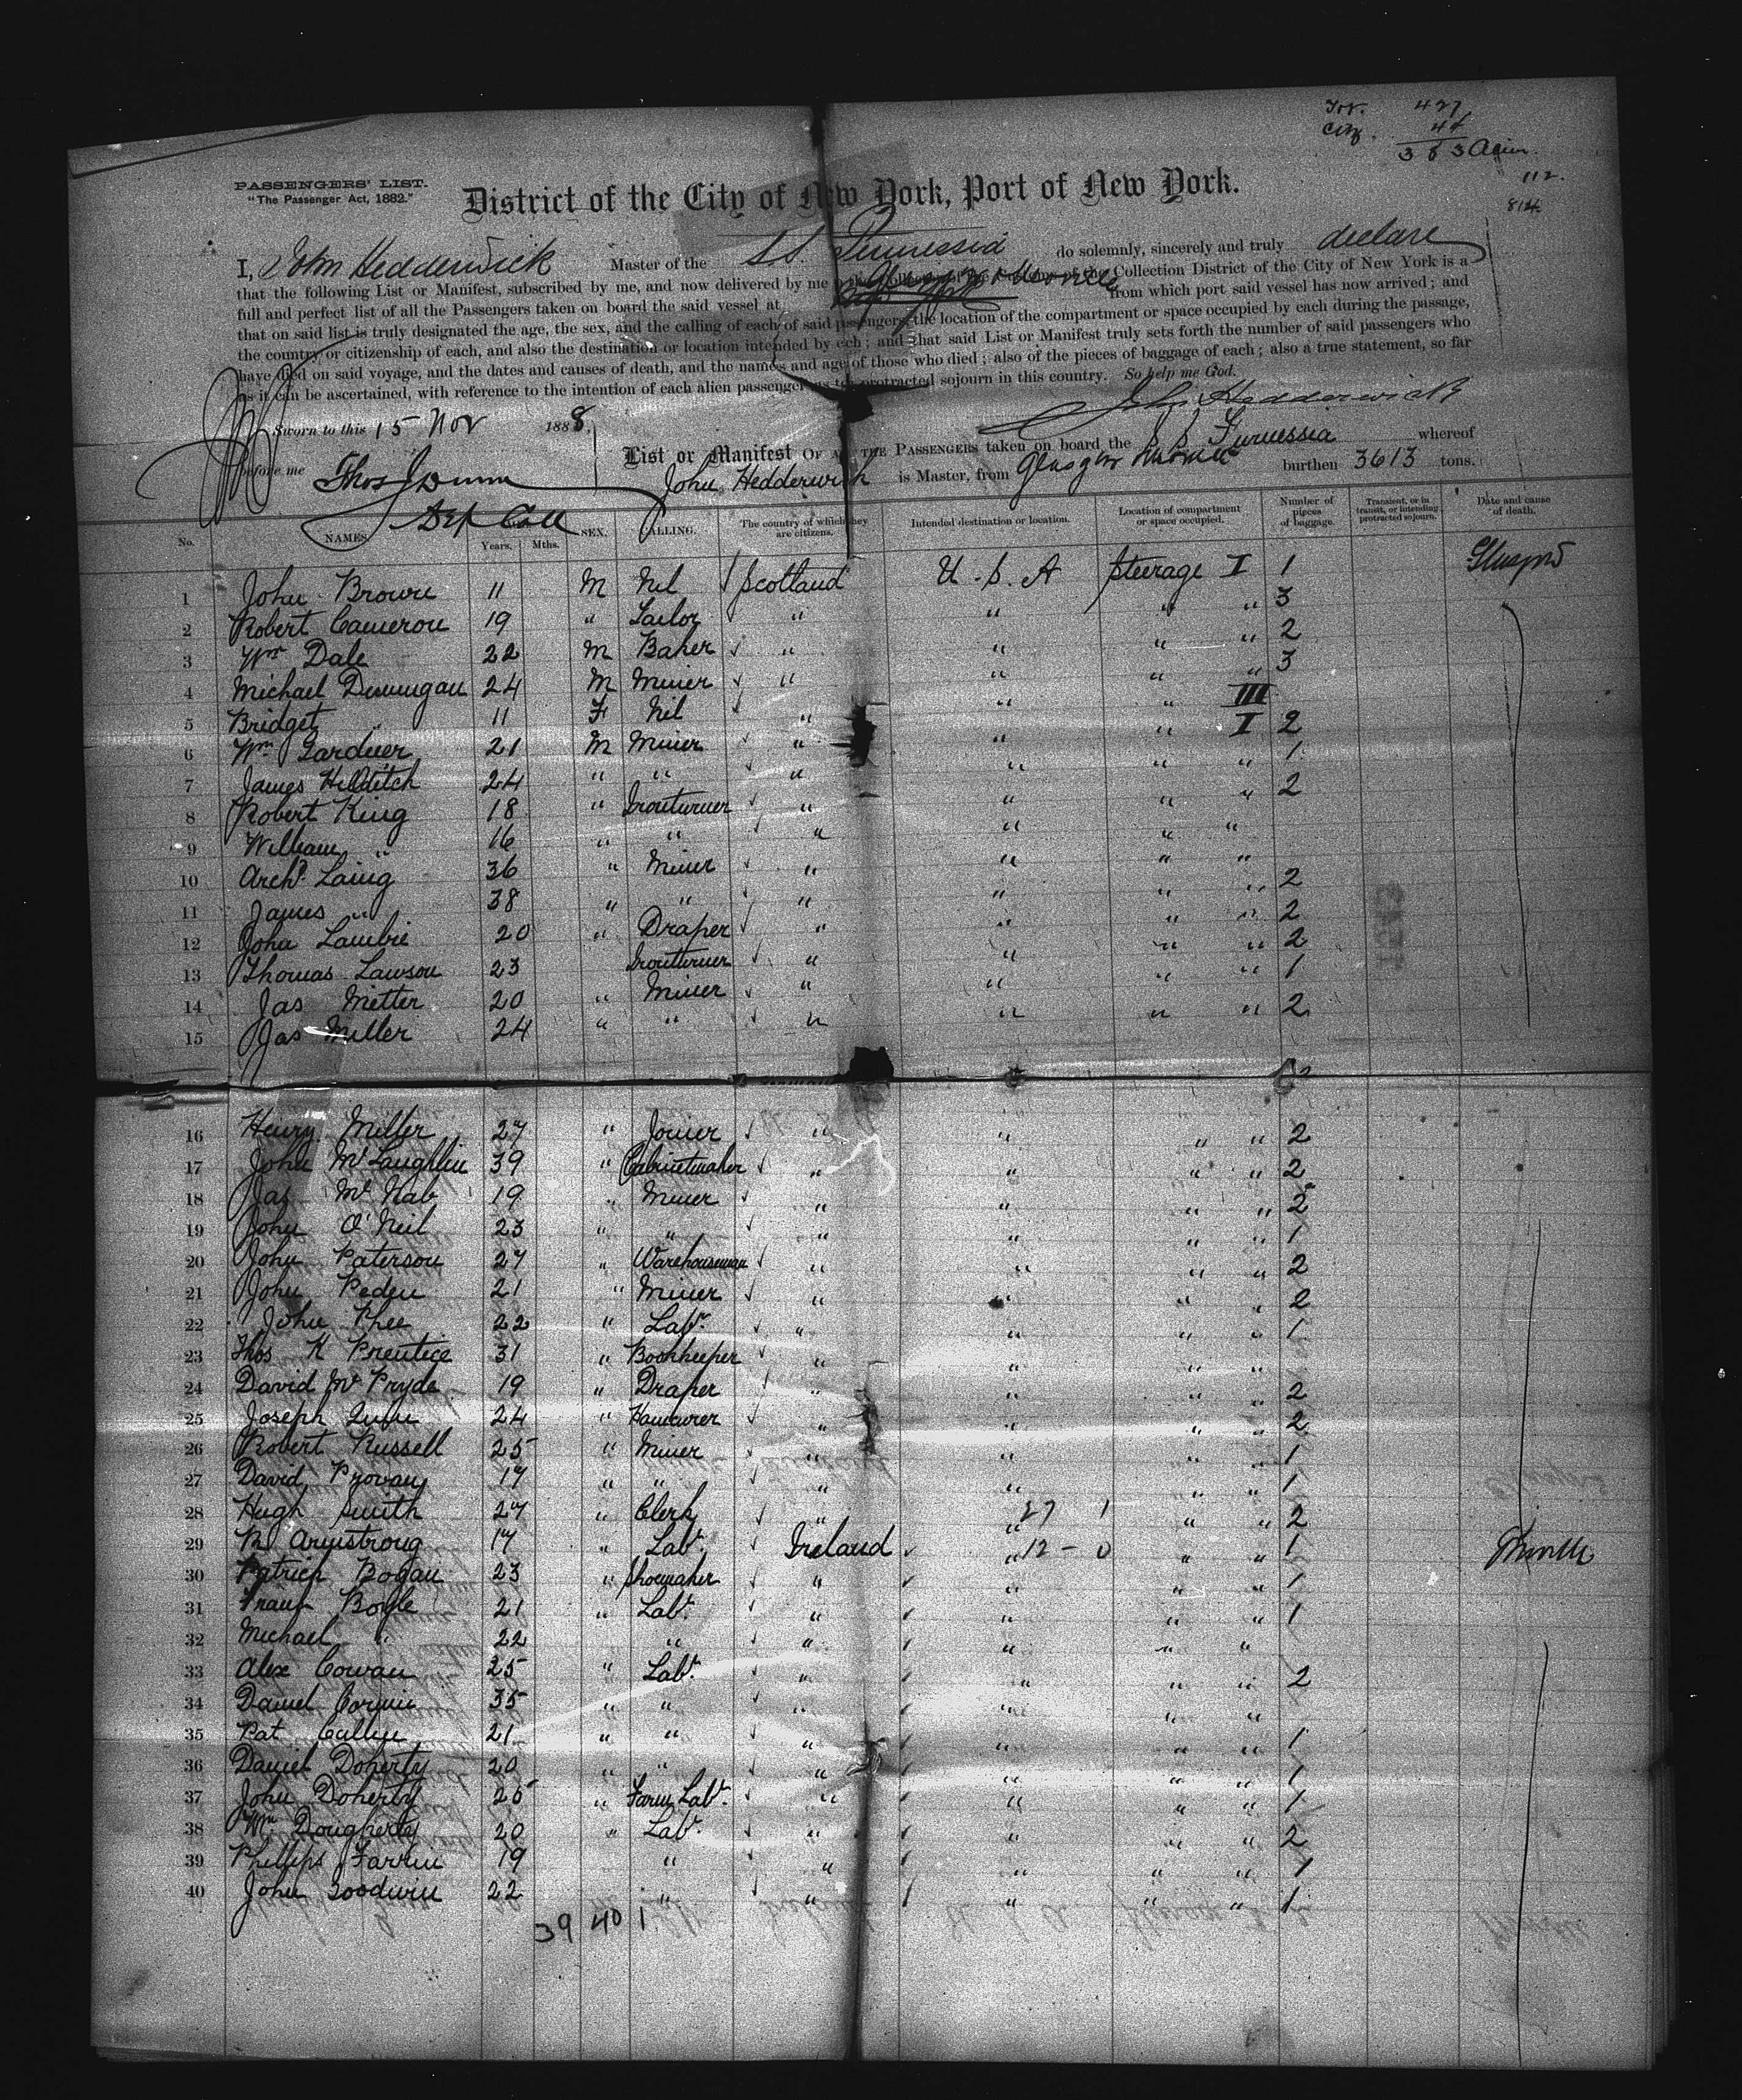 Tot. 427
Citz. 44
383 Alien
112.
814
PASSENGERS' LIST.
"The Passenger Act, 1882."
District of the City of New York, Port of New York.
I, John Hedderwick Master of the S.S. Furnessia do solemnly, sincerely and truly declare
that the following List or Manifest, subscribed by me, and now delivered by me Collection District of the City of New York is a
full and perfect list of all the Passengers taken on board the said vessel at from which port said vessel has now arrived; and
that on said list is truly designated the age, the sex, and the calling of each of said passengers, the location of the compartment or space occupied by each during the passage,
the country or citizenship of each, and also the destination or location intended by each; and that said List or Manifest truly sets forth the number of said passengers who
have died on said voyage, and the dates and causes of death, and the names and age of those who died; also of the pieces of baggage of each; also a true statement, so far
as it can be ascertained, with reference to the intention of each alien passenger as to protracted sojourn in this country. So help me God.
John Hedderwick
Sworn to this 15 Nov 1888.
before me Thos J Dunn
Dep Coll
List or Manifest OF ALL THE PASSENGERS taken on board the S S Furnessia whereof
John Hedderwick is Master, from Glasgow burthen 3613 tons.
No. NAMES. Years. Mths. SEX. CALLING. The country of which they are citizens. Intended destination or location. Location of compartment or space occupied. Number of pieces of baggage. Transient, or in transit, or intending protracted sojourn. Date and cause of death.
1 John Brown 11 M Nil Scotland U.S.A Steerage I 1 Glasgow
2 Robert Cameron 19 " Tailor " " " " 3
3 Wm Dale 22 M Baker " " " " 2
4 Michael 24 M Miner " " " " 3
5 Bridget " 11 F Nil " " " III
6 Wm Gardner 21 M Miner " " " I 2
7 James Hilditch 24 " " " " " " 1
8 Robert King 18 " Ironturner " " " " 2
9 William " 16 " " " " " "
10 Archd. Laing 36 " Miner " " " "
11 James " 38 " " " " " " 2
12 John Lambie 20 " Draper " " " " 2
13 Thomas Lawson 23 Ironturner " " " " 2
14 Jas Metter 20 " Miner " " " " 1
15 Jas Miller 24 " " " " " " 2
16 Henry Miller 27 " Joiner " " " " 2
17 John McLaughlin 39 " Cabinetmaker " " " " 2
18 Jas McNab 19 " Miner " " " " 2
19 John O'Neil 23 " " " " " " 1
20 John Paterson 27 " Warehouseman " " " " 2
21 John Peden 21 " Miner " " " " 2
22 John Phee 22 " Labr. " " " " 1
23 Thos K Prentice 31 " Bookkeeper " " " "
24 David McPryde 19 " Draper " " " " 2
25 Joseph Quin 24 " " " " " 2
26 Robert Russell 25 " Miner " " " " 1
27 David Provan 17 " " " " " " 1
28 Hugh Smith 27 " Clerk " " 27 1 " " 2
29 R Armstrong 17 " Labr. Ireland " 12 - 0 " " 1 Moville
30 Patrick Bogan 23 " Shoemaker " " " " 1
31 Frank Boyle 21 " Labr. " " " " 1
32 Michael " 22 " " " " "
33 Alex Cowan 25 " Labr. " " " " 2
34 Daniel 35 " " " " " "
35 Pat 21 " " " " " " 1
36 Daniel Doherty 20 " " " " " " 1
37 John Doherty 25 " Farm Labr. " " " " 1
38 Wm Dougherty 20 " Labr. " " " " 2
39 Phillips Farrin 19 " " " " " 1
40 John Goodwin 22 " " " " " 1
39 40 1